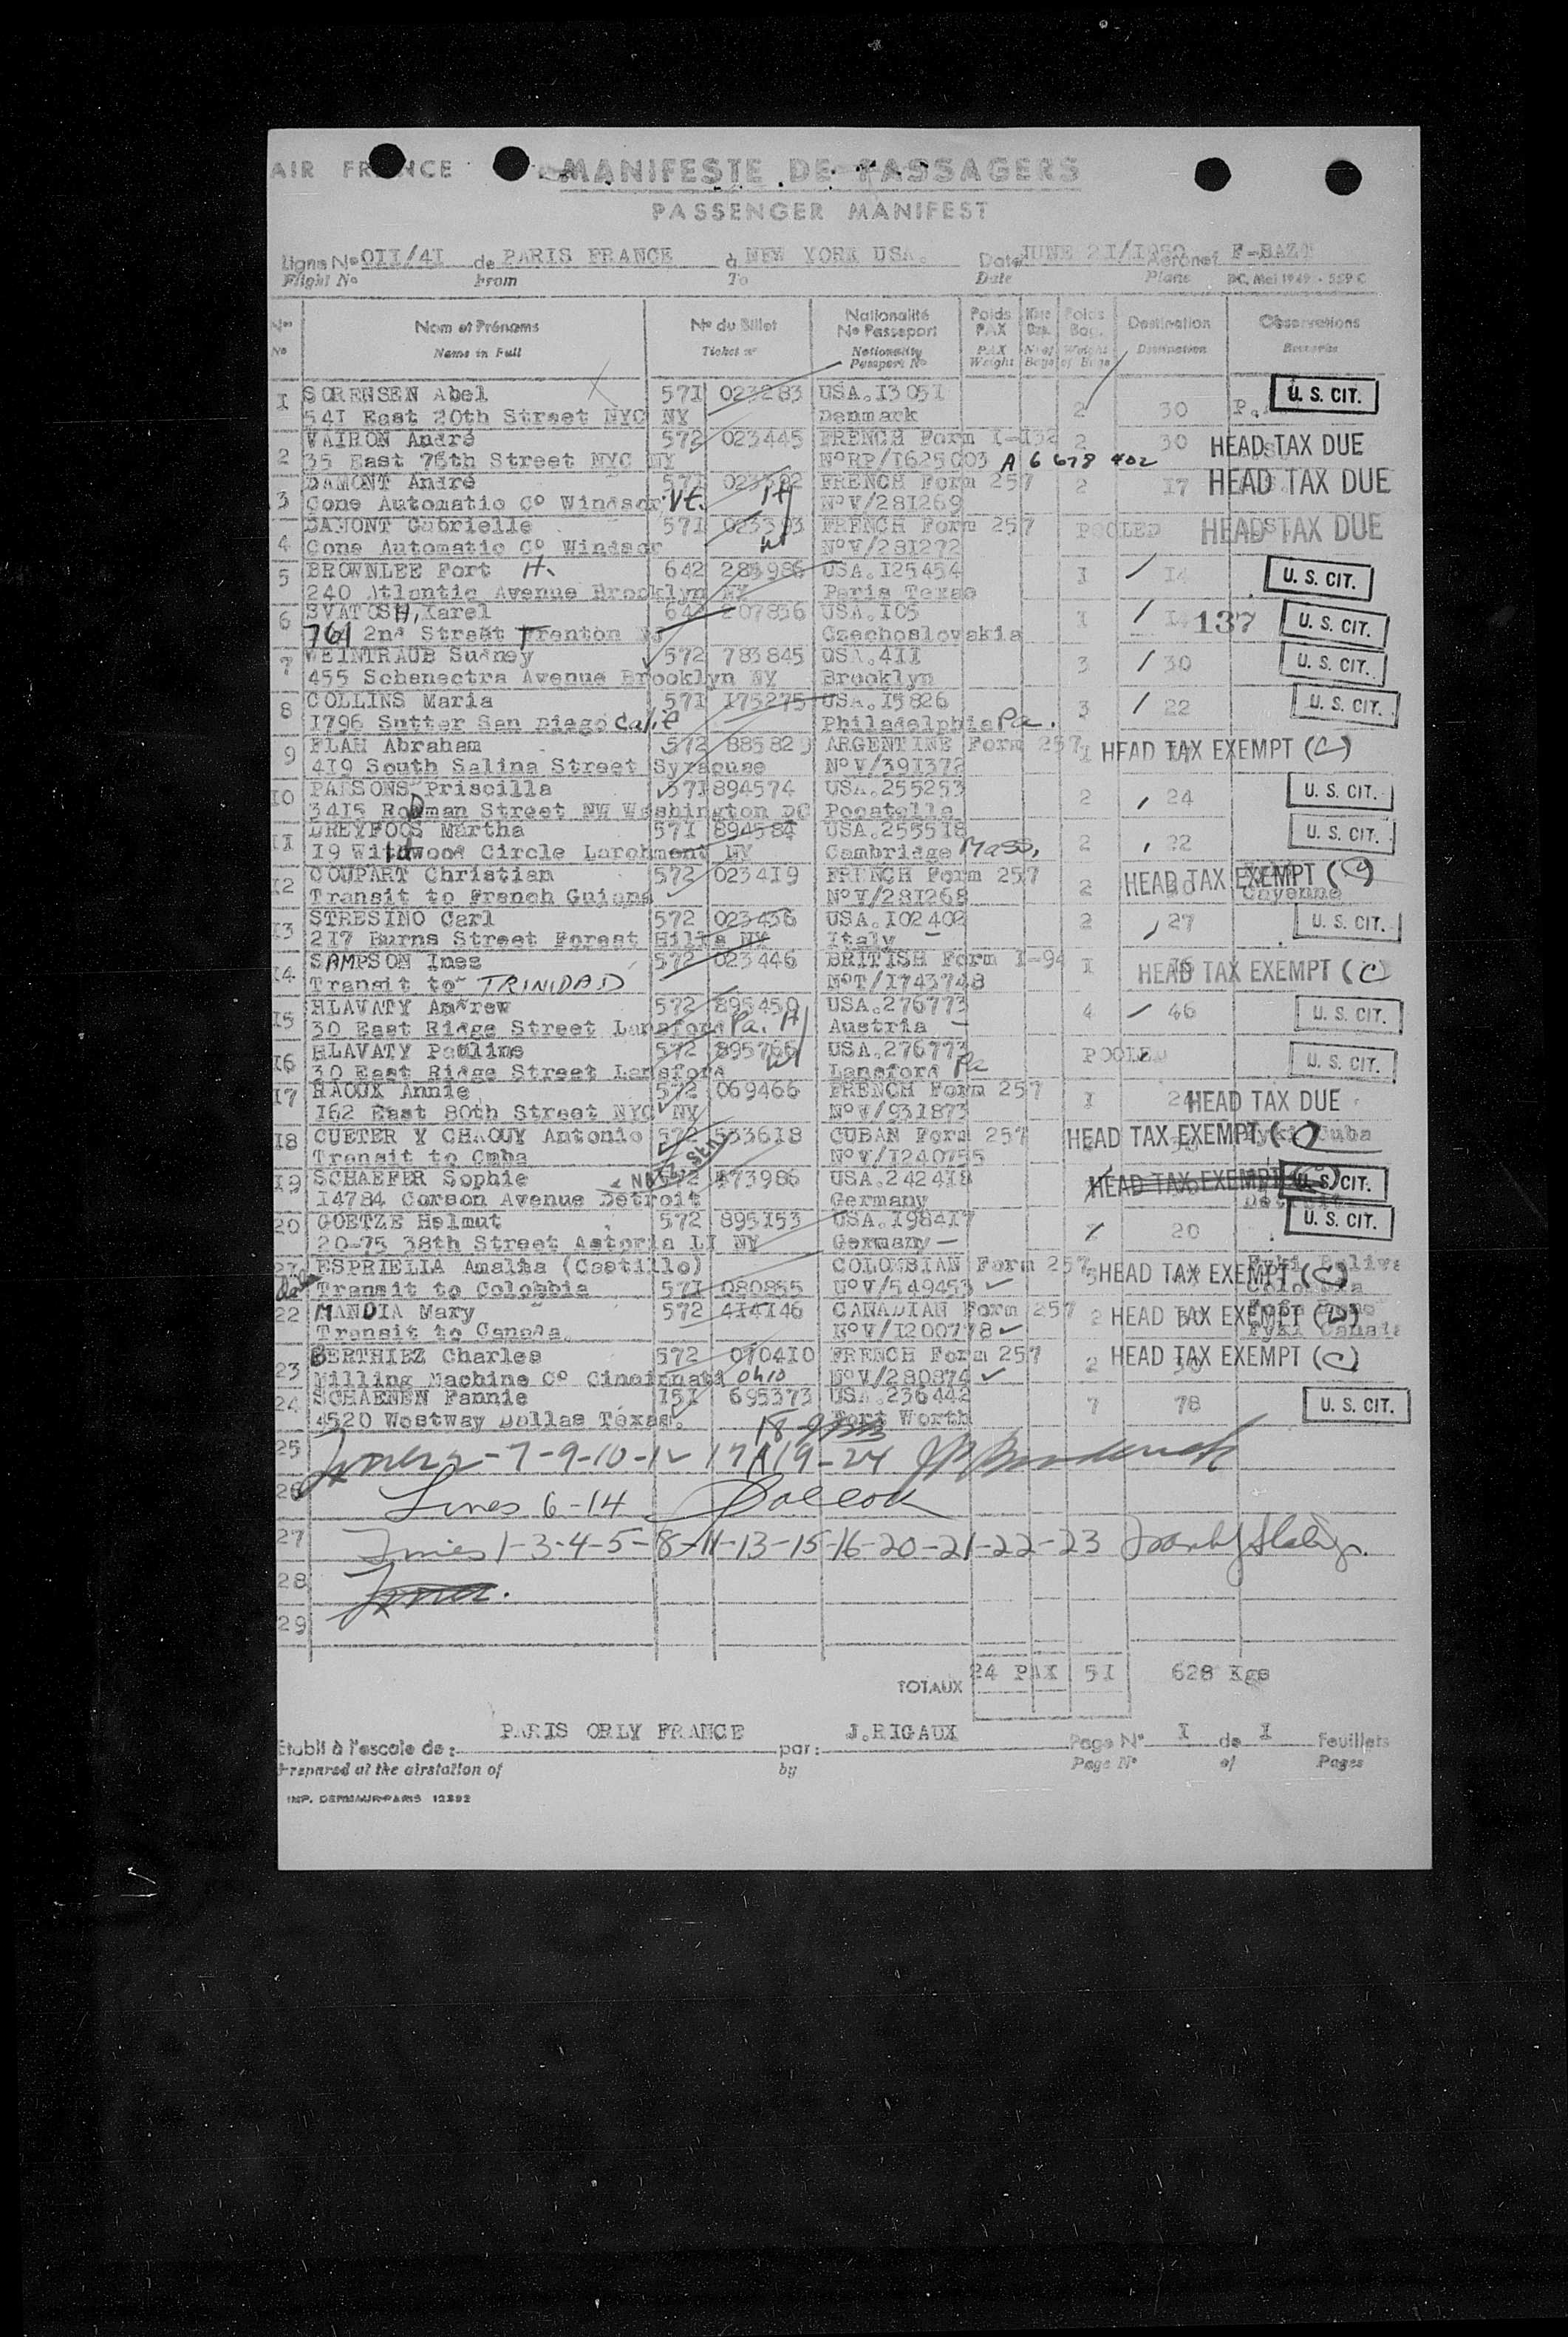 AIR FRANCE MANIFESTE DE PASSAGERS
PASSENGER MANIFEST
Ligne No OII/4I de PARIS FRANCE à NEW YORK USA. Date JUNE 2I/I950 Aéronef F-BAZT
Flight No From To Date Plane DC. Mai 1949 - 559 C
Nos Nom et Prénoms No du Billet Nationalité No Passeport Poids PAX Nbre Bag. Poids Bag. Destination Observations
No Name in Full Ticket no Nationality Passport No PAX Weight No of Bags Weight of Bags Destination Remarks
I SORENSEN Abel 57I 023283 USA.I3051 2 30 U. S. CIT.
54I East 20th Street NYC NY Denmark
2 VAIRON André 572 023445 FRENCH Form I-I32 2 30 HEAD TAX DUE
35 East 76th Street NYC NY NoRP/I625003 A 6 678 402
3 DAMONT André 57I FRENCH Form 257 2 I7 HEAD TAX DUE
Cone Automatic Co Windsor Vt. H NoV/28I269
4 DAMONT Gabrielle 57I 023393 FRENCH Form 257 POOLED HEAD TAX DUE
Cone Automatic Co Windsor W NoV/28I272
5 BROWNLEE Fort H. 642 285986 USA.I25454 I I4 U. S. CIT.
240 Atlantic Avenue Brooklyn NY Paris Texas
6 SVATOSH, Karel 642 207836 USA.I05 I I4 137 U. S. CIT.
761 2nd Street Trenton NJ Czechoslovakia
7 WEINTRAUB Sudney 572 783845 USA.4II 3 30 U. S. CIT.
455 Schenectra Avenue Brooklyn NY Brooklyn
8 COLLINS Maria 57I I75275 USA.I5826 3 22 U. S. CIT.
I796 Sutter San Diego Calif Philadelphia Pa.
9 FLAH Abraham 572 885829 ARGENTINE Form 257 I HEAD TAX EXEMPT (C)
4I9 South Salina Street Syracuse NoV/39I372
I0 PARSONS Priscilla 57I 894574 USA.255253 2 24 U. S. CIT.
34I5 RoDman Street NW Washington DC Pocatello
II DREYFOOS Martha 57I 894584 USA.2555I8 2 22 U. S. CIT.
I9 Wildwood Circle Larchmont NY Cambridge Mass.
I2 COUPART Christian 572 0234I9 FRENCH Form 257 2 HEAD TAX EXEMPT (C)
Transit to French Guiana NoV/28I268 Cayenne
I3 STRESINO Carl 572 023436 USA.I02402 2 27 U. S. CIT.
2I7 Burns Street Forest Hills NY Italy
I4 SAMPSON Ines 572 023446 BRITISH Form I-94 I HEAD TAX EXEMPT (C)
Transit to TRINIDAD NoT/I743748
I5 HLAVATY Andrew 572 895450 USA.276773 4 46 U. S. CIT.
30 East Ridge Street Lansford Pa. H Austria
I6 HLAVATY Pauline 572 895766 USA.276773 POOLED U. S. CIT.
30 East Ridge Street Lansford W Lansford Pa
I7 RAOUX Annie 572 069466 FRENCH Form 257 I HEAD TAX DUE
I62 East 80th Street NYC NY NoV/93I873
I8 CUETER Y CHAOUY Antonio 572 5336I8 CUBAN Form 257 HEAD TAX EXEMPT (C) Cuba
Transit to Cuba NoV/I240755
I9 SCHAEFER Sophie 473986 USA.2424I8 HEAD TAX EXEMPT U. S. CIT.
I4784 Corson Avenue Detroit Germany Detroit
20 GOETZE Helmut 572 895I53 USA.I984I7 20 U. S. CIT.
20-75 38th Street Astoria LI NY Germany
2I ESPRIELLA Amalia (Castillo) COLOMBIAN Form 257 HEAD TAX EXEMPT (C)
de Transit to Colombia 57I 080855 NoV/549453 Colombia
22 MANDIA Mary 572 4I4I46 CANADIAN Form 257 2 HEAD TAX EXEMPT
Transit to Canada NoV/I200778
23 BERTHIEZ Charles 572 0704I0 FRENCH Form 257 2 30 HEAD TAX EXEMPT (C)
Milling Machine Co Cincinnati Ohio NoV/280874
24 SCHAENEN Fannie I5I 695373 USA.236442 7 78 U. S. CIT.
4520 Westway Dallas Texas. Fort Worth
25 Lines 2-7-9-10-12 17 19-24
18
26 Lines 6-14
27 Lines 1-3-4-5-8-11-13-15-16-20-21-22-23
28
29
TOTAUX 24 PAX 5I 628 Kgs
PARIS ORLY FRANCE J.RIGAUX
Etabli à l'escale de: par: Page No I de I Feuillets
Prepared at the airstation of by Page No of Pages
IMP. DERMAUR-PARIS 12392